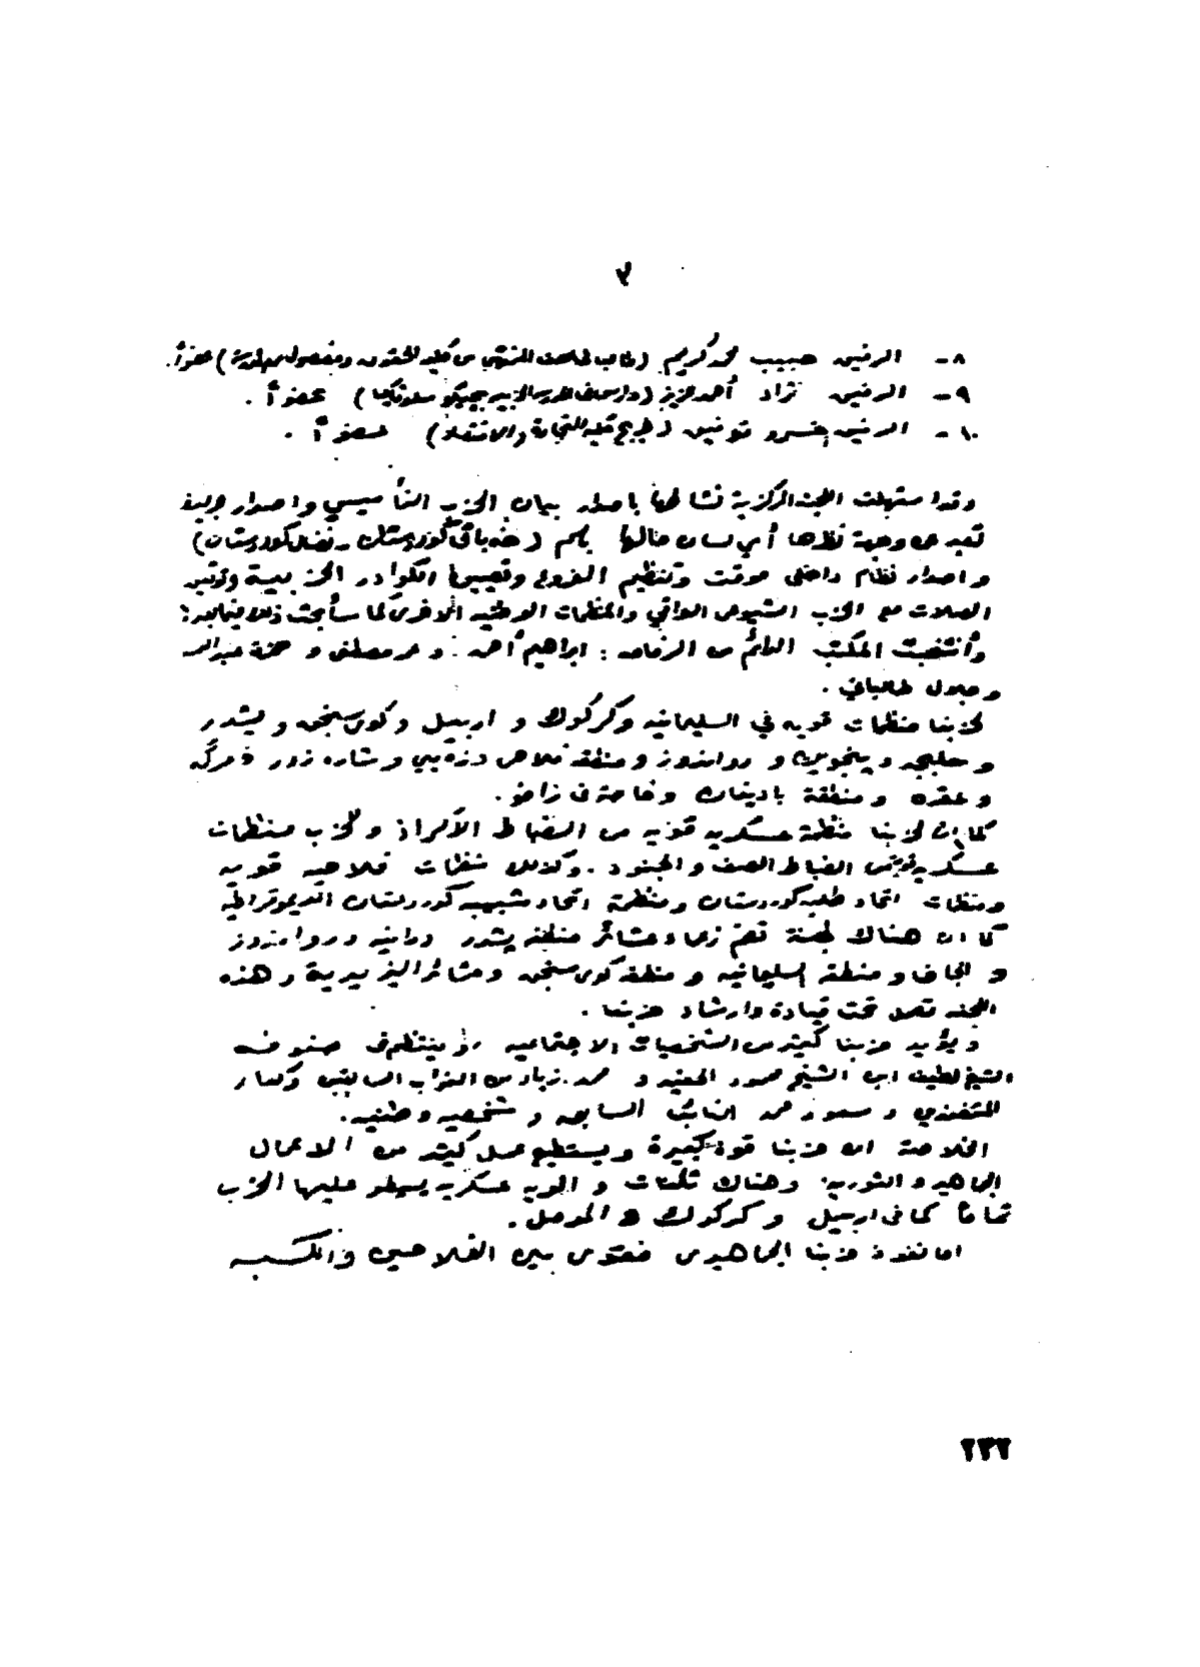 ٢
٨- الرفيق حبيب محمد كريم (طالب المنتهي من كلية الحقوق ومفصول من المدرسة) عضواً.
٩- الرفيق نژاد أحمد عزيز ( ) عضواً.
١٠- الرفيق خسرو توفيق (خريج كلية التجارة والاقتصاد) عضواً.
وقد استهلت اللجنة المركزية نشاطها باصدار بيان الحزب التأسيسي واصدار جريدة
تعبر عن وجهة نظرها أي لسان حالها باسم (خه باتى كوردستان - نضال كوردستان)
واصدار نظام داخلي موقت وتنظيم الفروع وتعيين الكوادر الحزبية وتوثيق
الصلات مع الحزب الشيوعي العراقي والمنظمات الوطنية الأخرى كما سأبحث ذلك فيما بعد:
وأنتخبت المكتب الدائم من الرفاق: ابراهيم أحمد. وعمر مصطفى وحمزة عبدالله
وجلال طالباني.
لحزبنا منظمات قوية في السليمانية وكركوك و اربيل وكوى سنجق و پشدر
وحلبجه وپنجوين و رواندوز ومنطقة فلاحي دزه يى وشاره زور
وعقره ومنطقة بادينان وخاصة في زاخو.
كما ان لحزبنا منظمة عسكرية قوية من الضباط الأكراد وللحزب منظمات
عسكرية الضباط الصف والجنود. وكذلك منظمات فلاحية قوية
ومنظمات اتحاد طلبة كوردستان ومنظمة اتحاد شبيبة كوردستان الديموقراطية
كما ان هناك لجنة تضم زعماء عشائر منطقة پشدر ورانيه و رواندوز
و الجاف ومنطقة السليمانيه و منطقة كوى سنجق وعشائر اليزيدية وهذه
اللجنة تعمل تحت قيادة وارشاد حزبنا.
ويؤيد حزبنا كثير من الشخصيات الاجتماعية صفوفه
الشيخ لطيف ابن الشيخ محمود الحفيد و محمد زياد من النواب السابقين وكبار
المتنفذين و مسعود محمد النائب السابق و شخصية وطنية.
الخلاصة ان حزبنا قوة كبيرة ويستطيع عمل كثير من الاعمال
الجماهيرية والثورية. وهناك ثكنات و الوية عسكرية يسيطر عليها الحزب
تماماً كما في اربيل وكركوك و الموصل.
اما نفوذ حزبنا الجماهيري فقوي بين الفلاحين والكسبة
٢٣٢